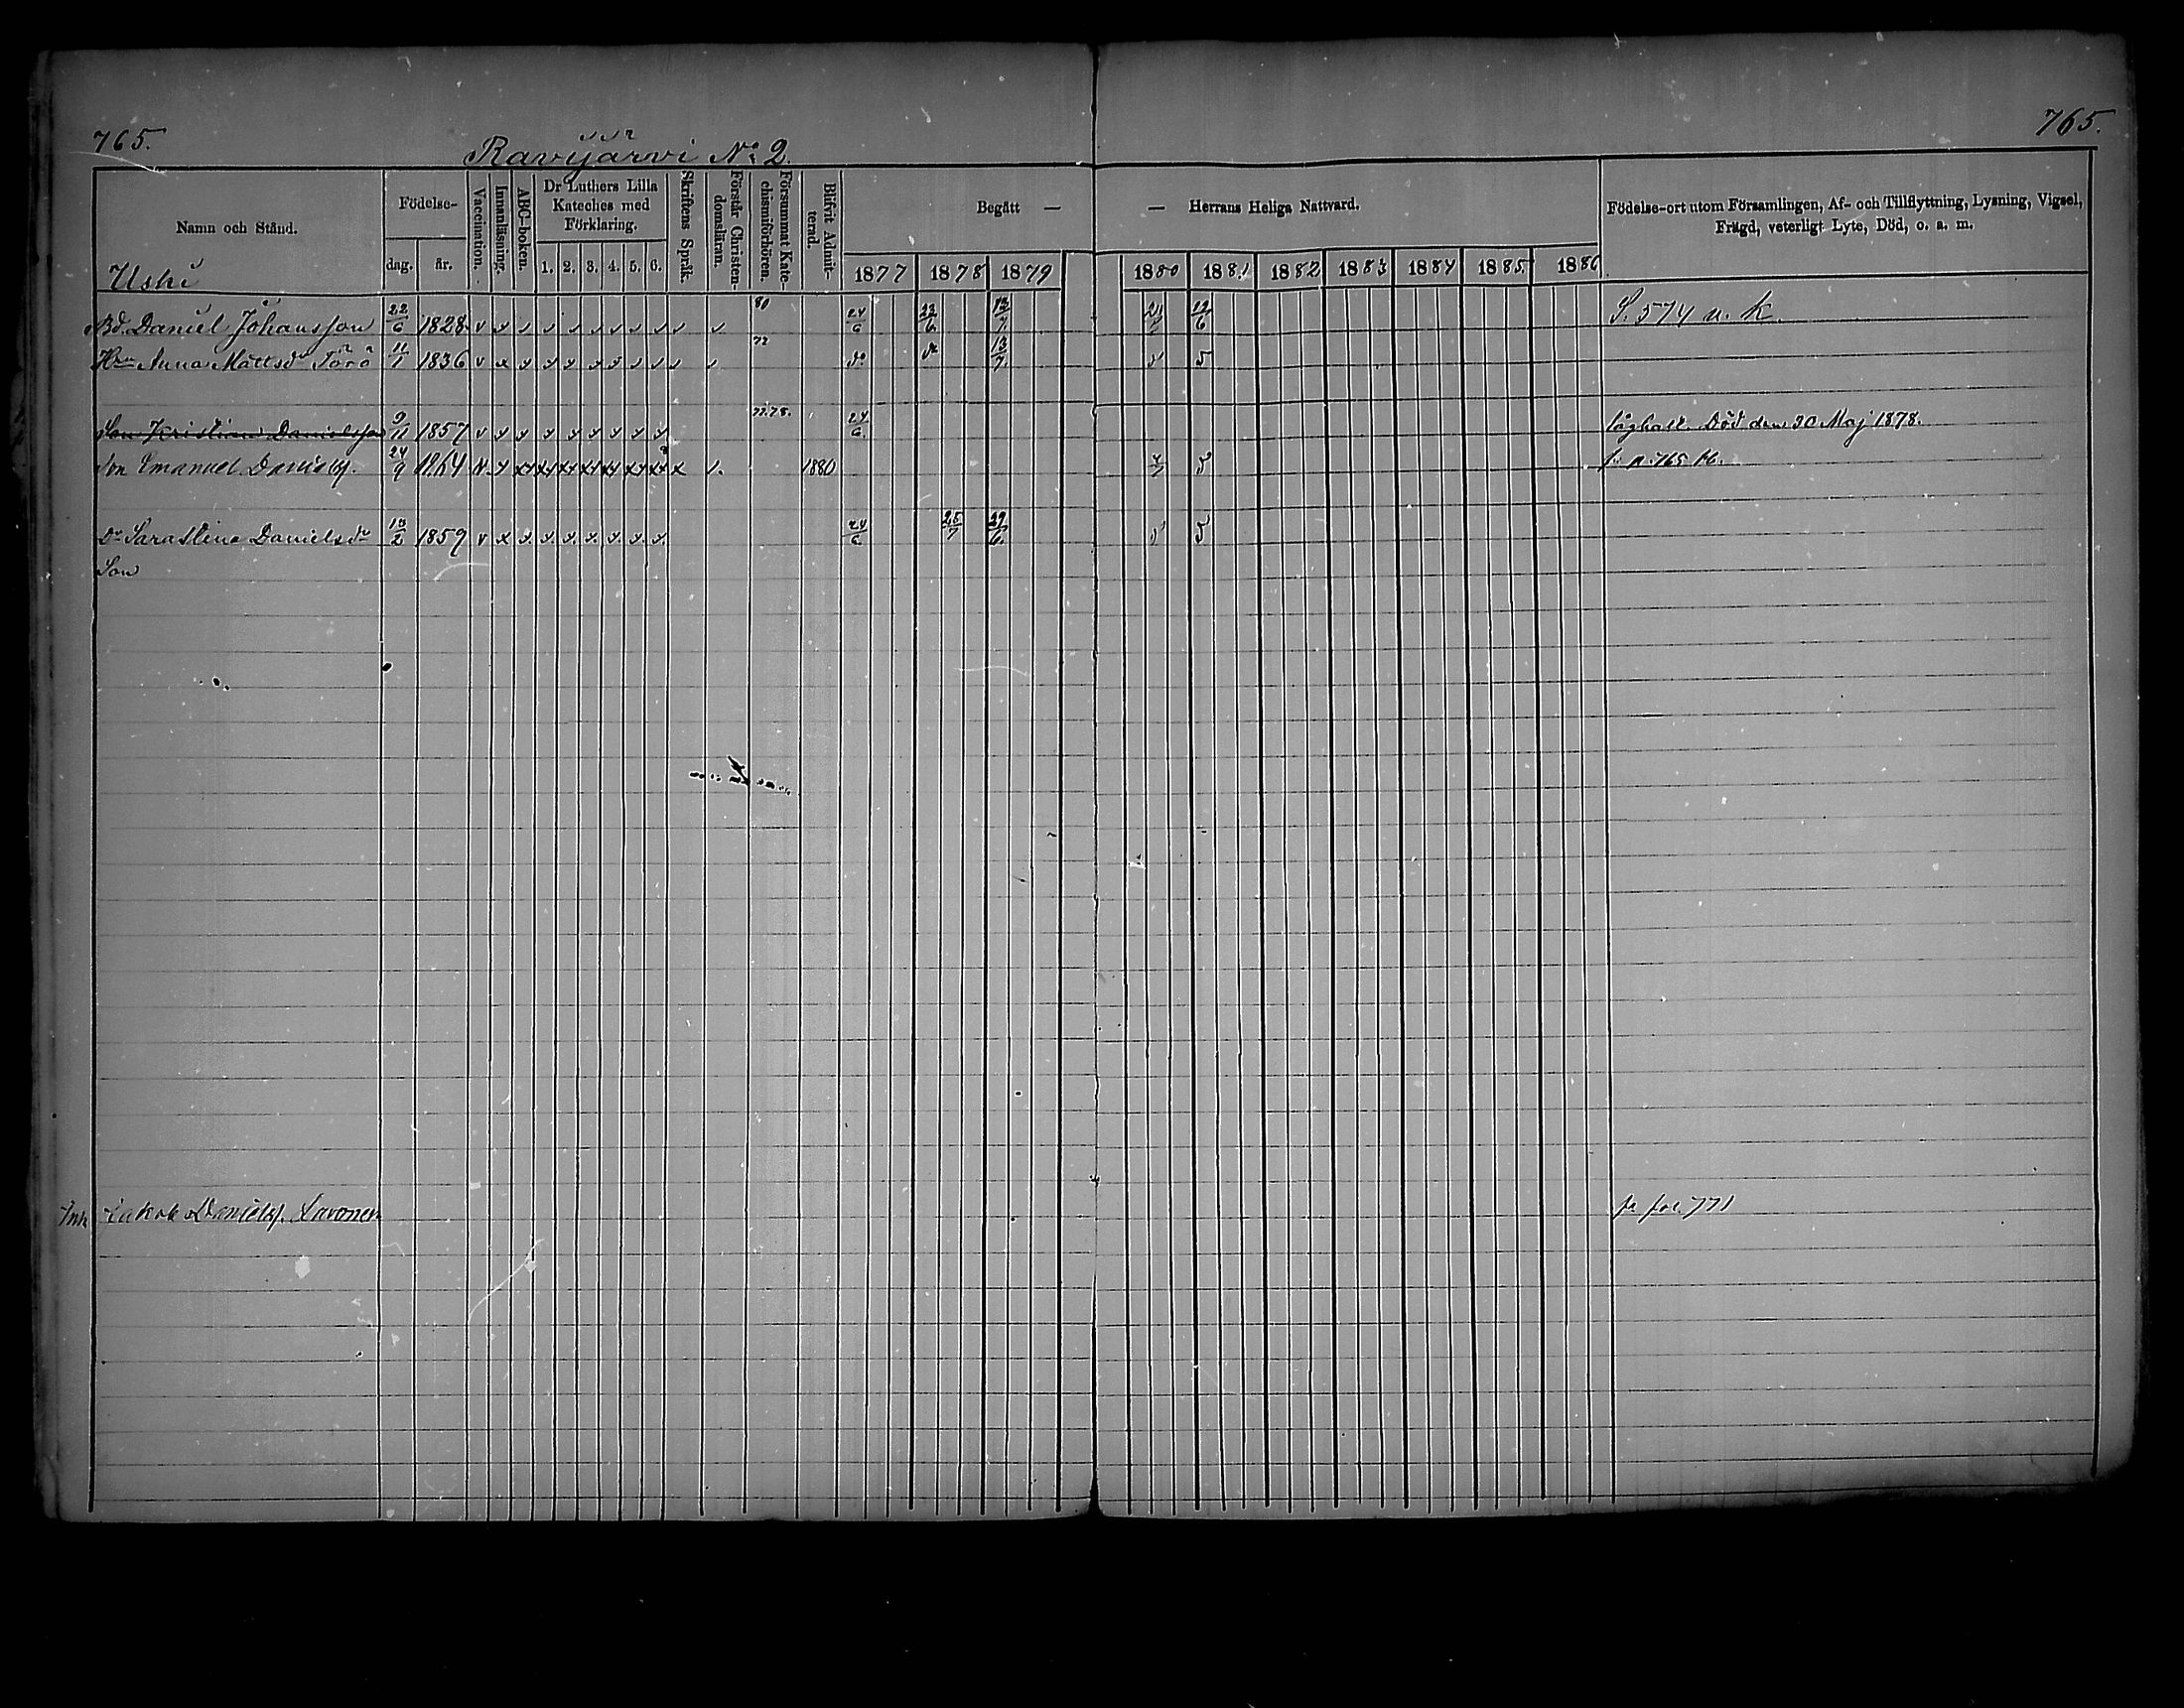 765.
765.
Ravijärvi No 2.
Namn och Stånd.
Födelse-
dag.
år.
Vaccination.
Innanläsning.
ABC-boken.
Dr Luthers Lilla Kateches med Förklaring.
1. 2. 3. 4. 5. 6.
Skriftens Språk.
Förstår Christendomsläran.
Försummat Katechismiförhören.
Blifvit Admitterad.
Begått — — Herrans Heliga Nattvard.
1877 1878 1879 1880 1881 1882 1883 1884 1885 1886
Födelse-ort utom Församlingen, Af- och Tillflyttning, Lysning, Vigsel,
Frägd, veterligt Lyte, Död, o. a. m.
Uski
Bd. Daniel Johansson 22/6 1828 v 80 24/6 22/6 13/7 12/6 S. 574 n. k.
Hru Anna Mattsdr Törö 11/1 1836 v 72 do do 13/7 5
Son Kristian Danielsson 9/11 1857 v 77.78. 24/6. låghalt. Död den 30 Maj 1878.
Son Emanuel Daniels. 24/9 1864 1880 5 p. 765
Dr Sara Stina Danielsdr 1859 v 24/6 25/7 29/6 5
Son
Inh Jakob Daniels. Savonen fr fol. 771